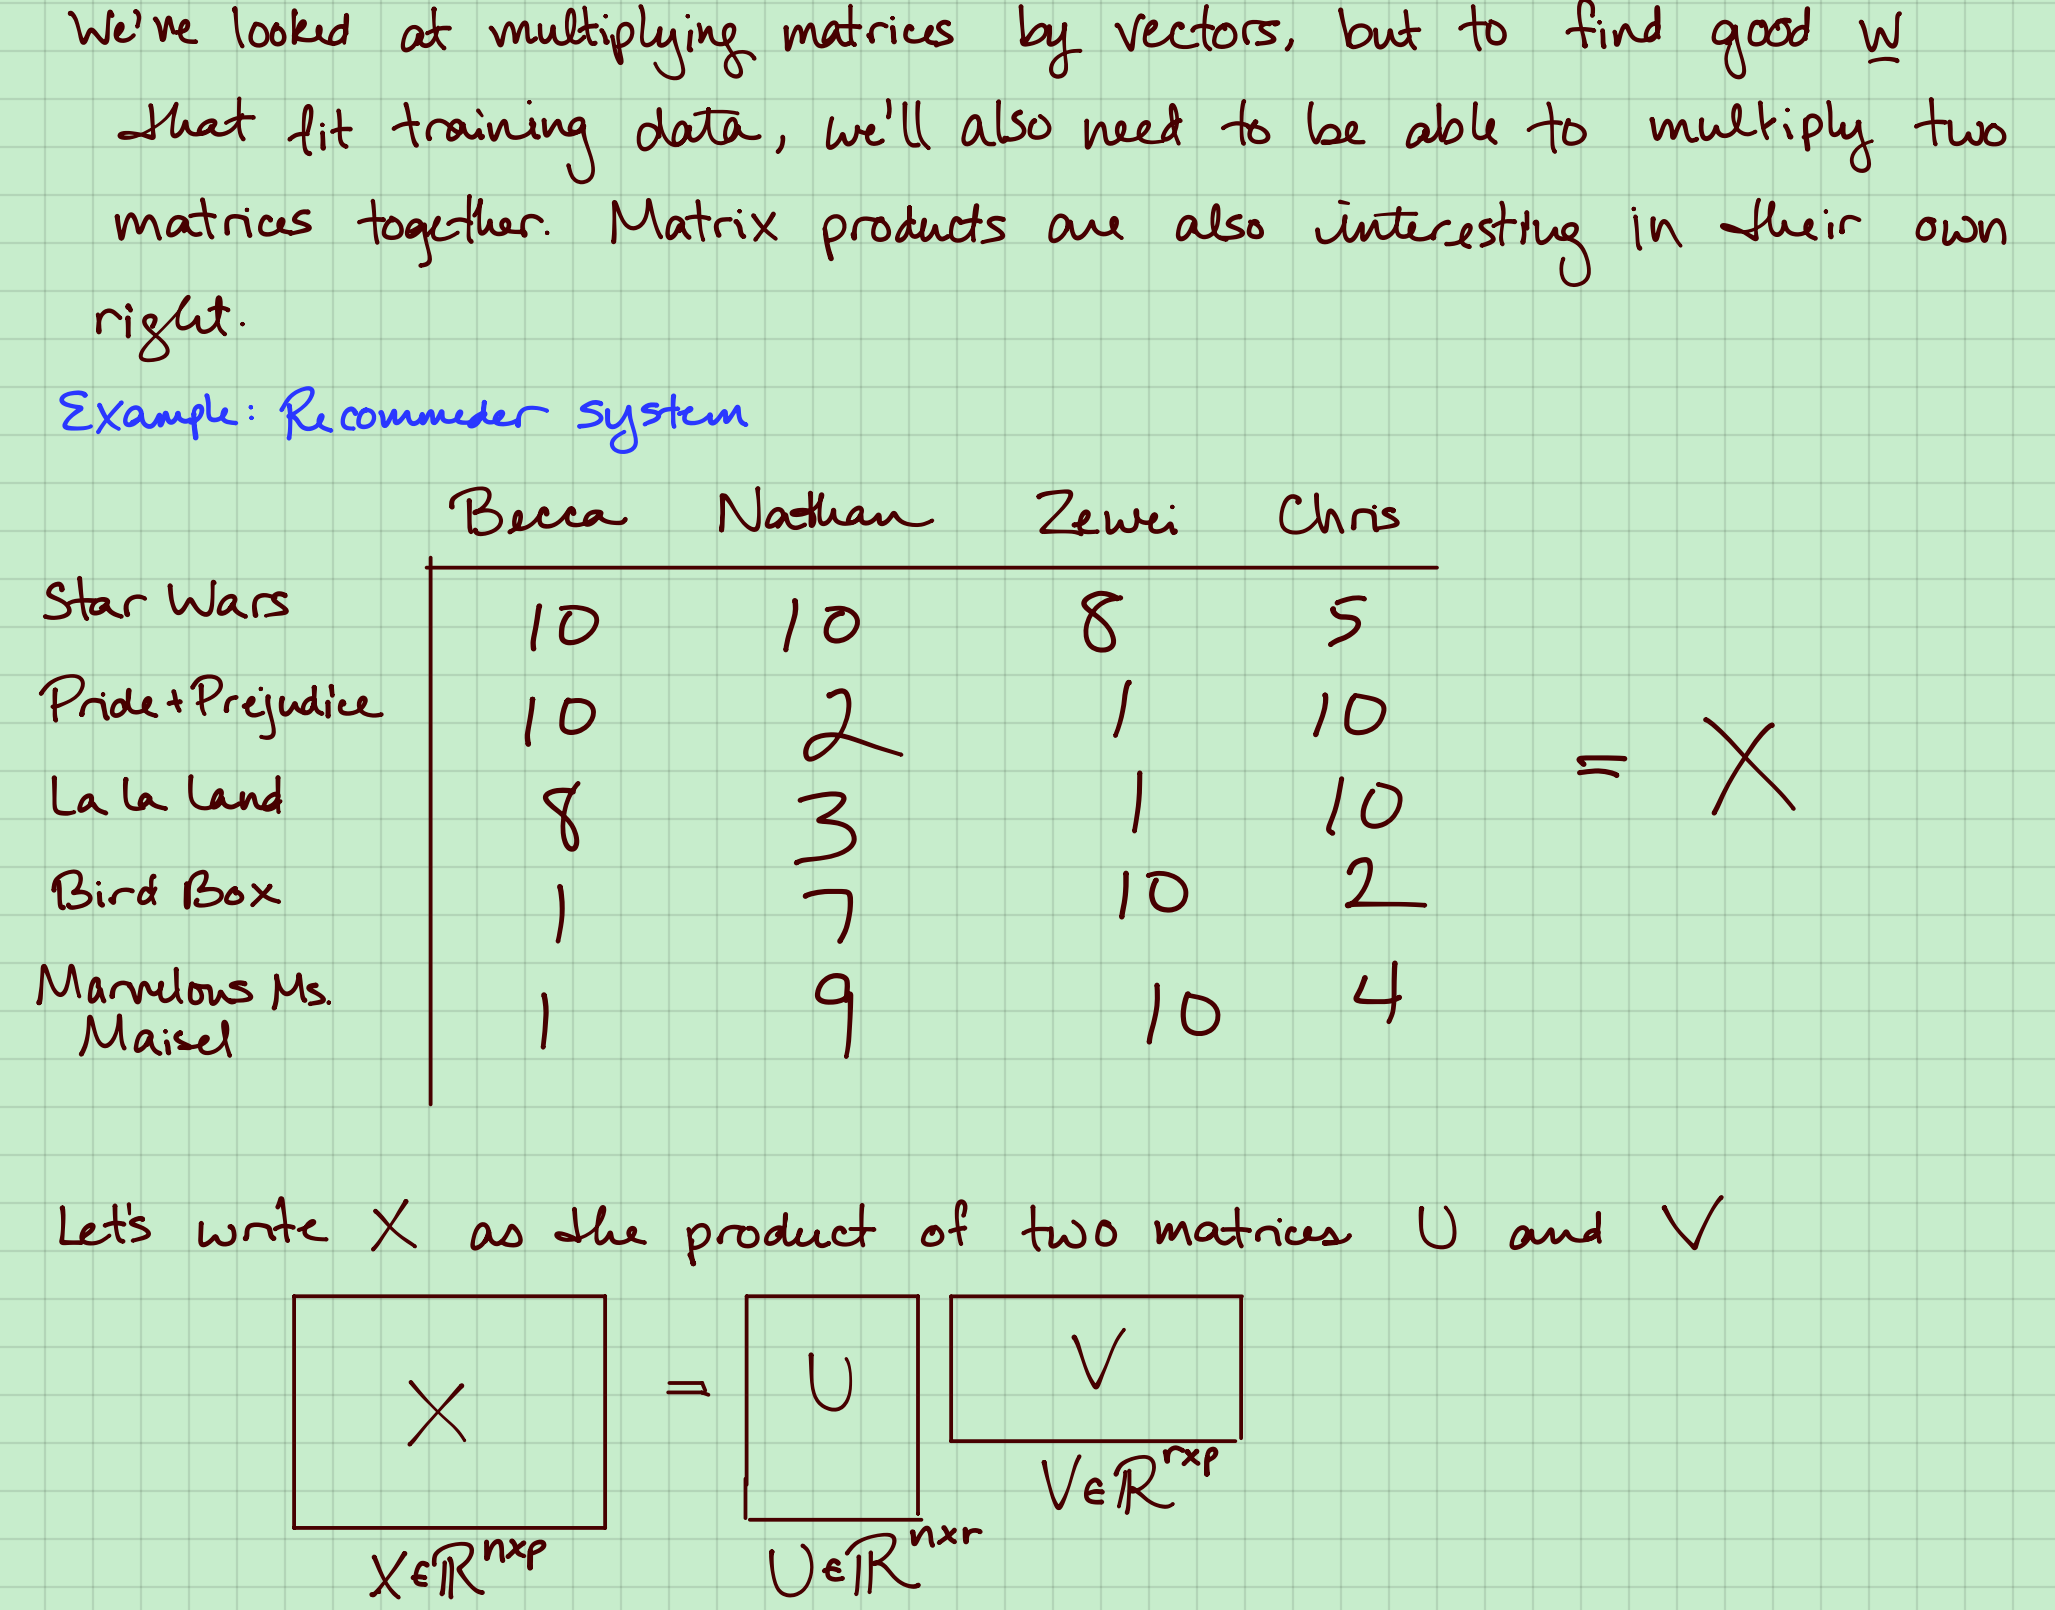 We've looked at multiplying matrices by vectors, but to find good w
that fit training data, we'll also need to be able to multiply two
matrices together. Matrix products are also interesting in their own
right.
Example: Recommeder system
Becca Nathan Zewei Chris
Star Wars 10 10 8 5
Pride + Prejudice 10 2 1 10
= X
La La Land 8 3 1 10
Bird Box 1 7 10 2
Marvelous Ms.
Maisel 1 9 10 4
Let's write X as the product of two matrices U and V
X = U V
V∈ℝ^{r×p}
X∈ℝ^{n×p} U∈ℝ^{n×r}